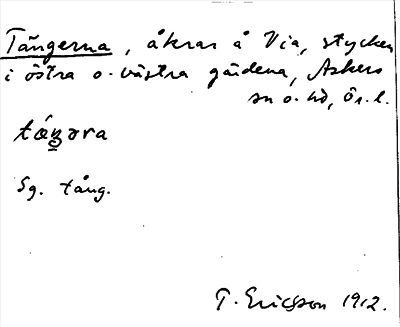 Tängerna, åkrar å Via, stycken
i östra o. västra gärdena, Askers
sn o. hd, Ör. l.
Sg. tång.
T. Ericsson 1912.